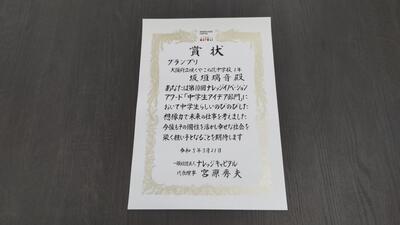 賞状
グランプリ
大阪府立咲くやこの花中学校 1年
坂垣瑞音殿
あなたは第10回ナレッジイノベーション
アワード「中学生アイデア部門」に
おいて中学生らしいのびのびした
想像力で未来の仕事を考えました
今後もその個性を活かし幸せな社会を
築く担い手となることを期待します
令和5年3月21日
一般社団法人 ナレッジキャピタル
代表理事 宮原秀夫